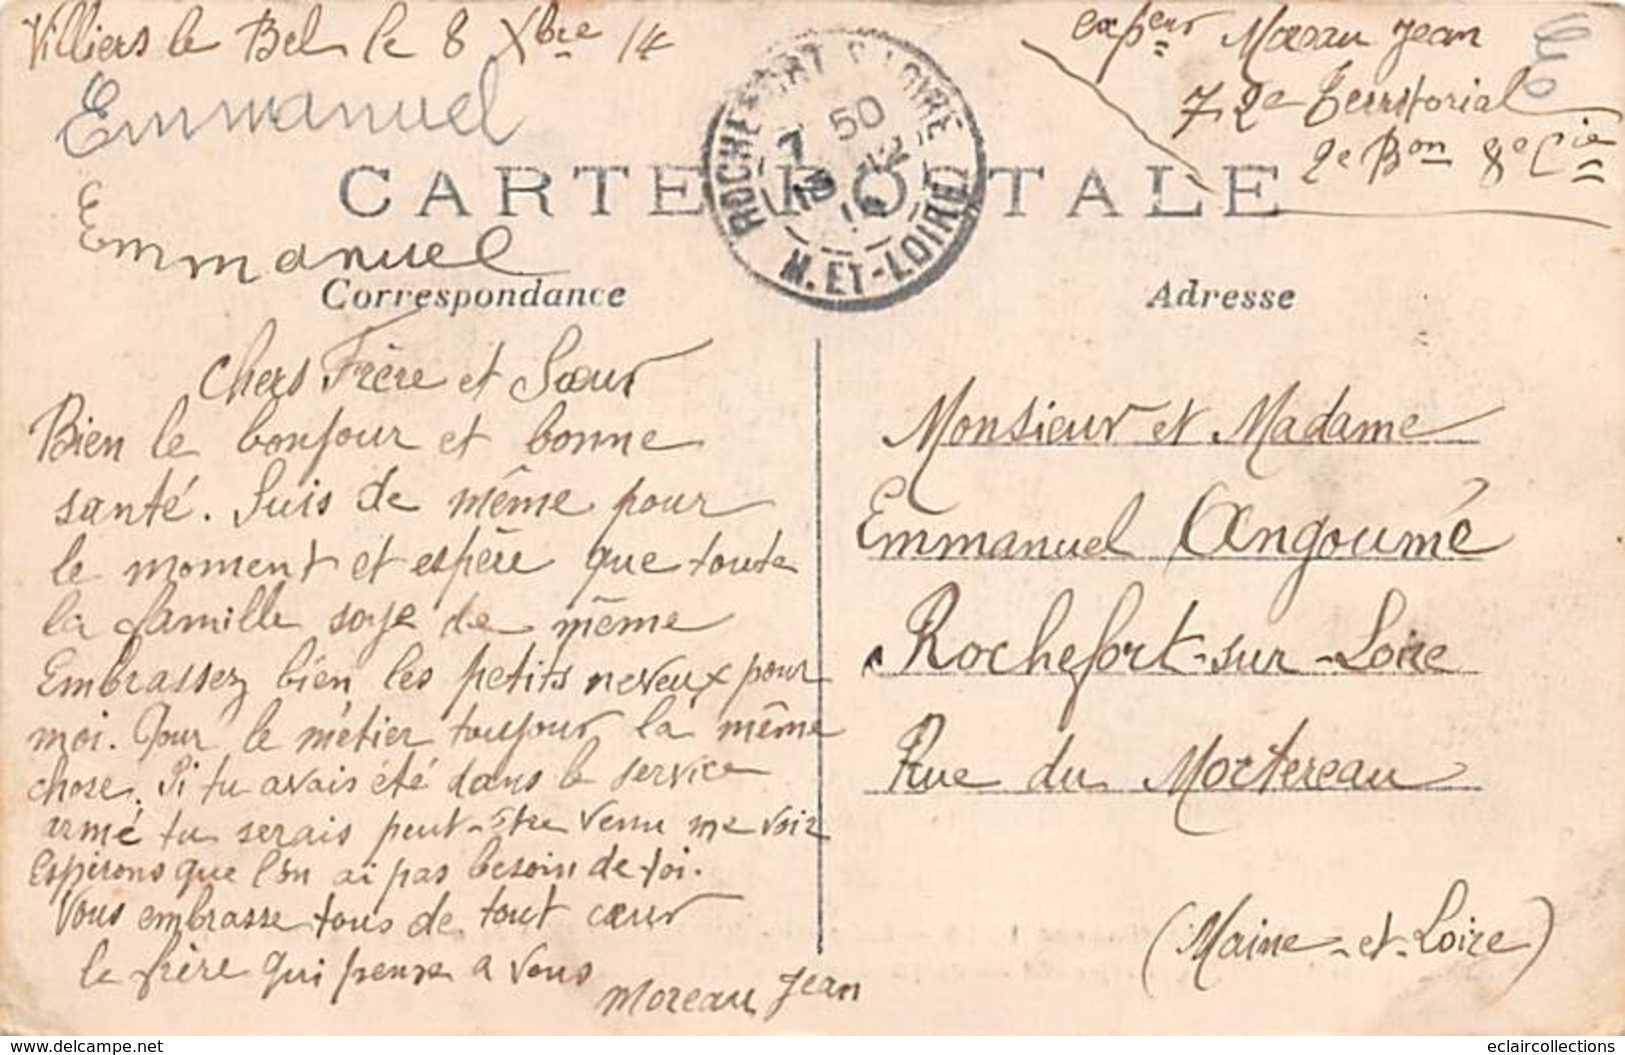 Villiers le Bel le 8 Xbre 14
expeur Moreau Jean
72e Territorial
2e Bon 8e Cie
Emmanuel
Emmanuel
ROCHEFORT S. LOIRE
7 50
12
M. ET-LOIRE
CARTE POSTALE
Correspondance
Adresse
Chers Frère et Sœur
Bien le bonjour et bonne
santé. Suis de même pour
le moment et espère que toute
la famille soye de même
Embrassez bien les petits neveux pour
moi. Pour le métier toujour la même
chose. Si tu avais été dans le service
armé tu serais peut-être venu me voir
Espérons que l'on ai pas besoin de toi.
Vous embrasse tous de tout cœur
le frère qui pense a vous
Moreau Jean
Monsieur et Madame
Emmanuel Angoumé
Rochefort-sur-Loire
Rue du Mortereau
(Maine-et-Loire)
www.delcampe.net
eclaircollections